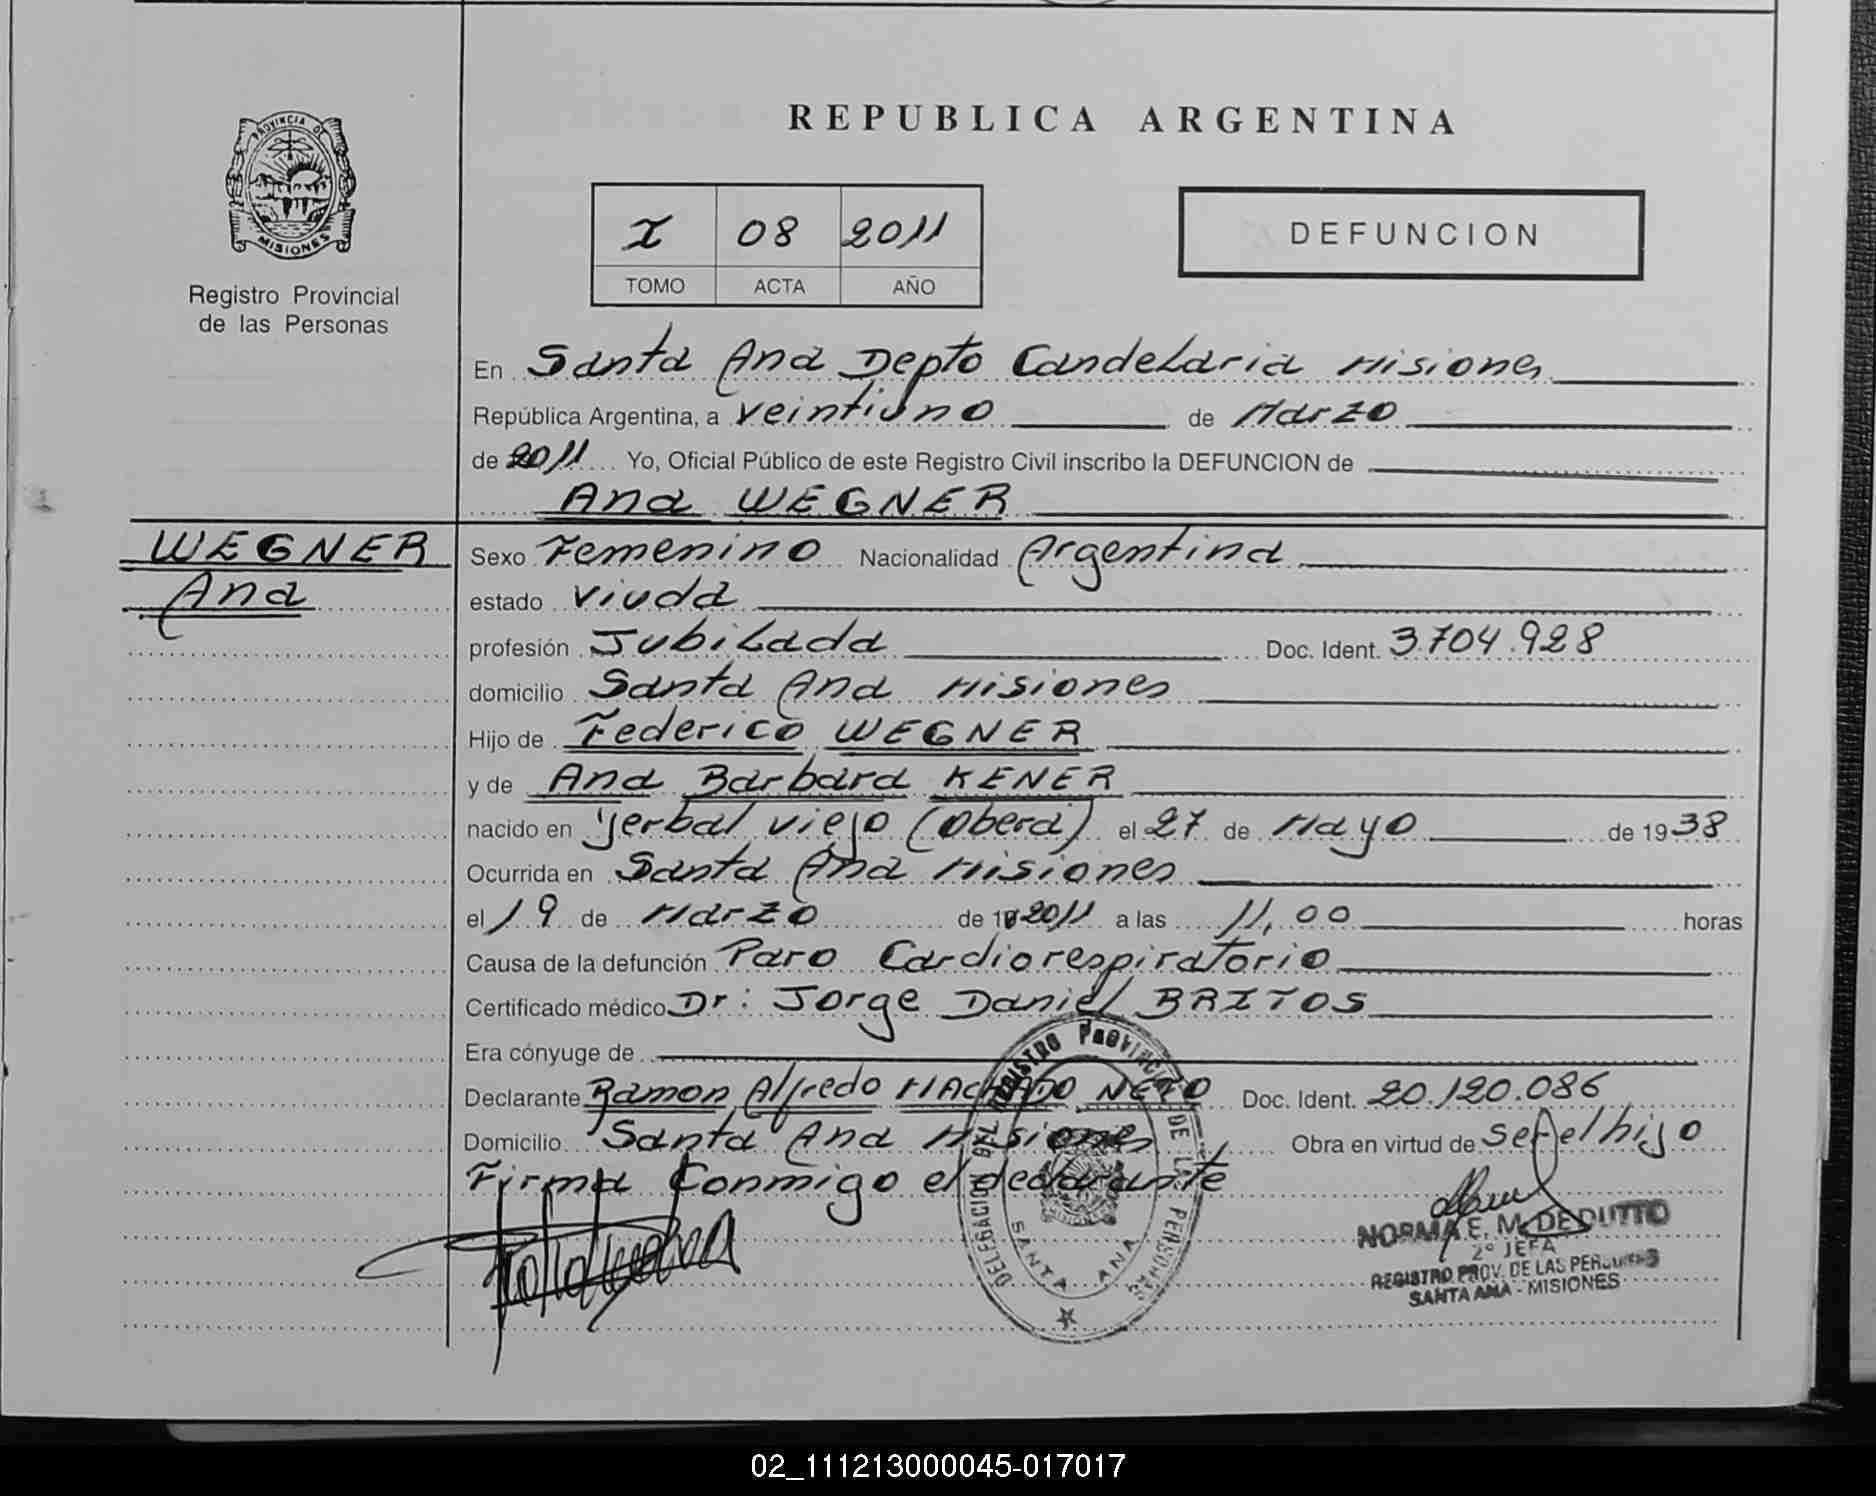 REPUBLICA ARGENTINA
PROVINCIA DE
MISIONES
Registro Provincial
de las Personas
I 08 2011
TOMO ACTA AÑO
DEFUNCION
En Santa Ana Depto Candelaria Misiones
República Argentina, a veintiuno de Marzo
de 2011 Yo, Oficial Público de este Registro Civil inscribo la DEFUNCION de
Ana WEGNER
WEGNER
Ana
Sexo Femenino Nacionalidad Argentina
estado viuda
profesión Jubilada Doc. Ident. 3.704.928
domicilio Santa Ana Misiones
Hijo de Federico WEGNER
y de Ana Barbara KENER
nacido en Yerbal viejo (Obera) el 27 de Mayo de 1938
Ocurrida en Santa Ana Misiones
el 19 de Marzo de 2011 a las 11,00 horas
Causa de la defunción Paro Cardiorespiratorio
Certificado médico Dr: Jorge Daniel BRITOS
Era cónyuge de
Declarante Ramon Alfredo MACHADO NETO Doc. Ident. 20.120.086
Domicilio Santa Ana Misiones Obra en virtud de ser el hijo
Firma Conmigo el declarante
DELEGACION DEL REGISTRO PROVINCIAL DE LAS PERSONAS
SANTA ANA
NORMA E. M. DE DUTTO
2º JEFA
REGISTRO PROV. DE LAS PERSONAS
SANTA ANA - MISIONES
02_111213000045-017017